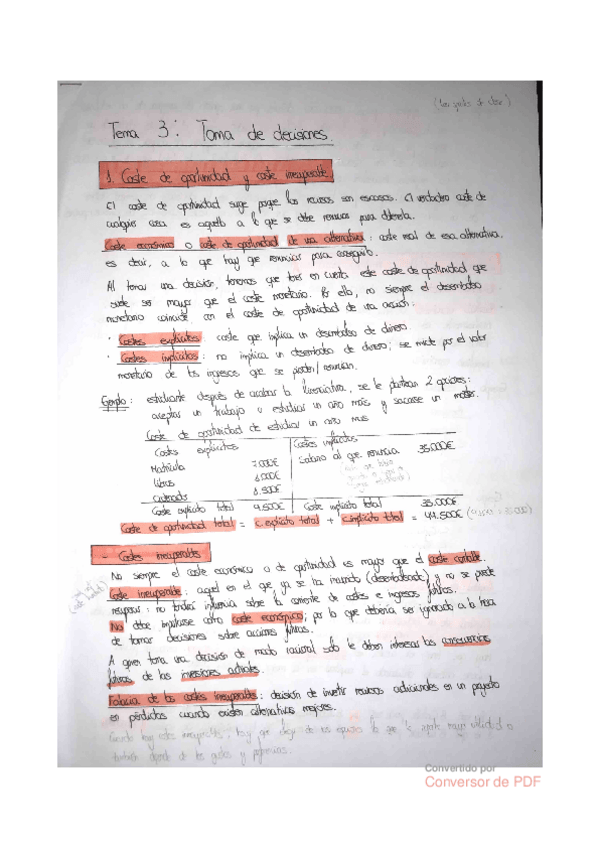 Tema 3: Toma de decisiones.
1. Coste de oportunidad y coste irrecuperable
El coste de oportunidad surge porque los recursos son escasos. El verdadero coste de
cualquier cosa es aquello a lo que se debe renunciar para obtenerla.
Coste económico o coste de oportunidad de una alternativa: coste real de esa alternativa,
es decir, a lo que hay que renunciar para conseguirlo.
Al tomar una decisión, tenemos que tener en cuenta este coste de oportunidad que
suele ser mayor que el coste monetario. Por ello, no siempre el desembolso
monetario coincide con el coste de oportunidad de una acción:
· Costes explícitos: coste que implica un desembolso de dinero.
· Costes implícitos: no implica un desembolso de dinero; se mide por el valor
monetario de los ingresos que se pierden/renuncian.
Ejemplo: estudiante después de acabar la licenciatura, se le plantean 2 opciones:
aceptar un trabajo o estudiar un año más y sacarse un máster.
Coste de oportunidad de estudiar un año más
Costes explícitos Costes implícitos
Matrícula Salario al que renuncia 35.000€
libros
ordenador
Coste explícito total 9.500€ Coste implícito total 35.000€
Coste de oportunidad total = c. explícito total + c. implícito total = 44.500€
- Costes irrecuperables
No siempre el coste económico o de oportunidad es mayor que el coste contable.
Coste irrecuperable: aquel en el que ya se ha incurrido (desembolsado) y no se puede
recuperar: no tendrá influencia sobre la corriente de costes e ingresos futuros.
No debe imputarse como coste económico; por lo que debería ser ignorado a la hora
de tomar decisiones sobre acciones futuras.
A quien toma una decisión de modo racional sólo le deben interesar las consecuencias
futuras de las inversiones actuales.
Falacia de los costes irrecuperables: decisión de invertir recursos adicionales en un proyecto
en pérdidas cuando existen alternativas mejores.
también depende de los gustos y preferencias.
Convertido por
Conversor de PDF